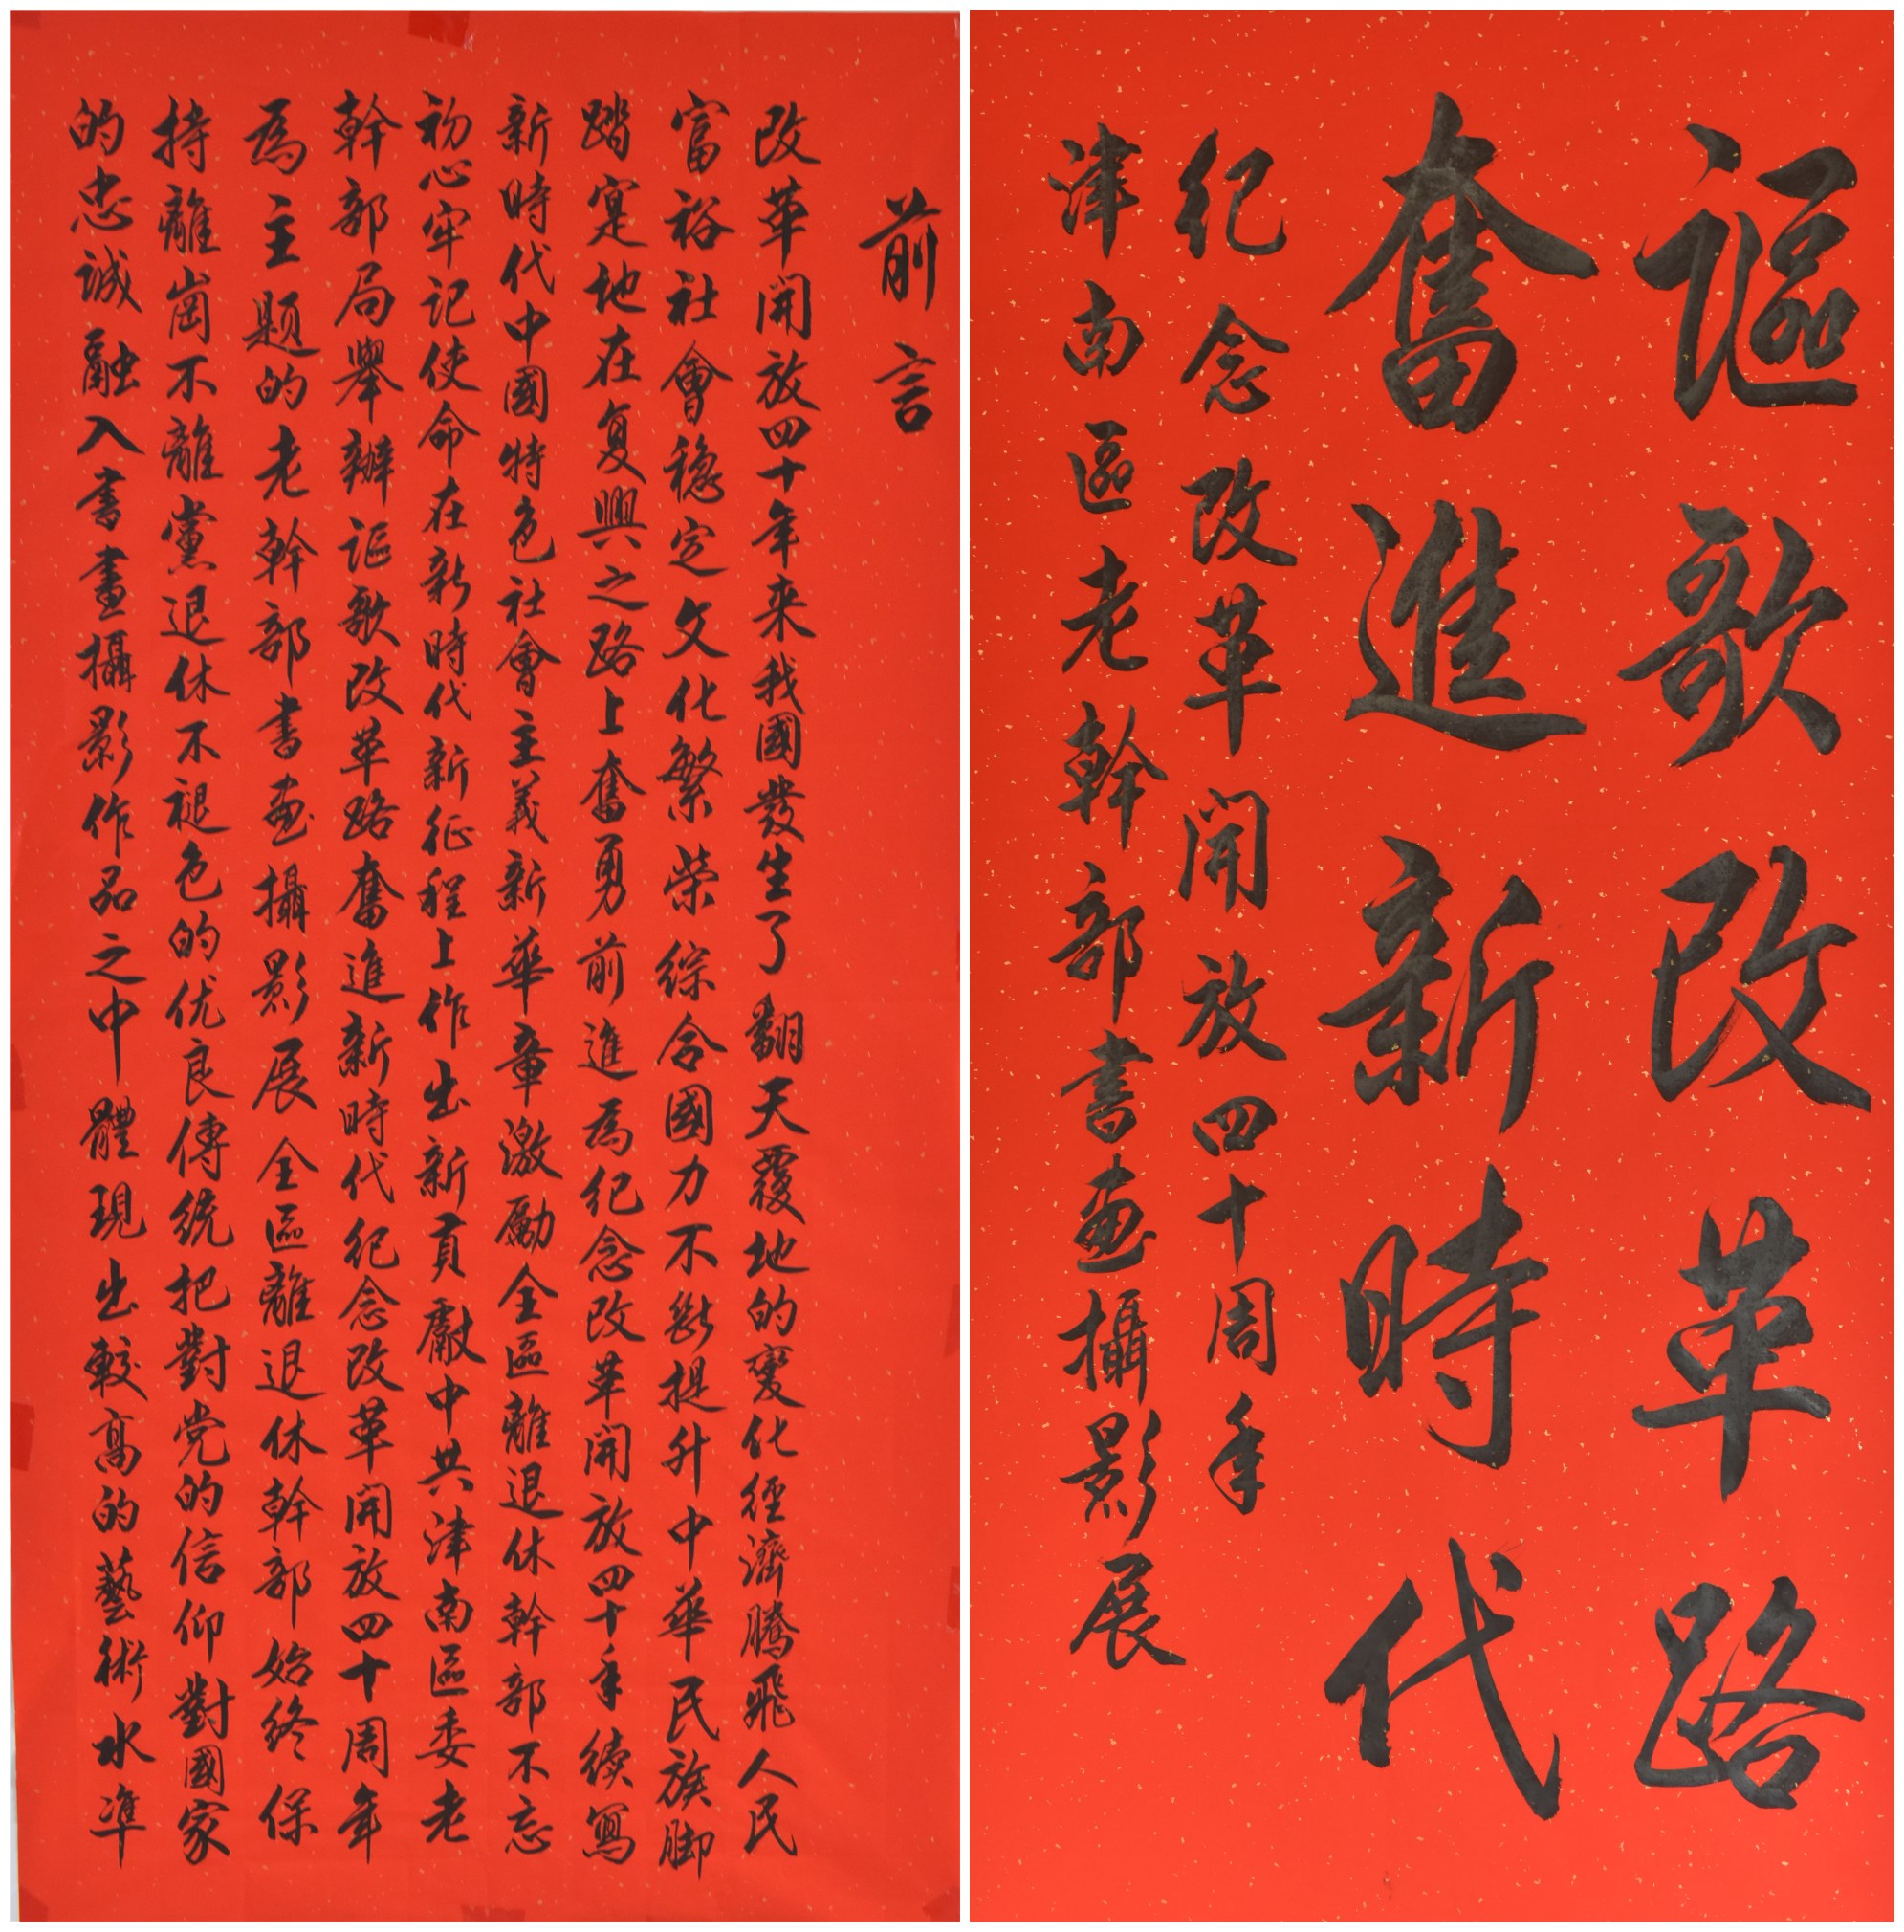 謳歌改革路
奮進新時代
紀念改革開放四十周年
津南區老幹部書画攝影展
前言
改革開放四十年來我國發生了翻天覆地的變化經濟騰飛人民
富裕社會穩定文化繁榮綜合國力不斷提升中華民族脚
踏寔地在复興之路上奮勇前進為紀念改革開放四十年續寫
新時代中國特色社會主義新華章激勵全區離退休幹部不忘
初心牢记使命在新時代新征程上作出新貢獻中共津南區委老
幹部局舉辦謳歌改革路奮進新時代紀念改革開放四十周年
為主题的老幹部書画攝影展全區離退休幹部始终保
持離崗不離黨退休不褪色的优良傳統把對党的信仰對國家
的忠誠融入書畫攝影作品之中體現出較高的藝術水準